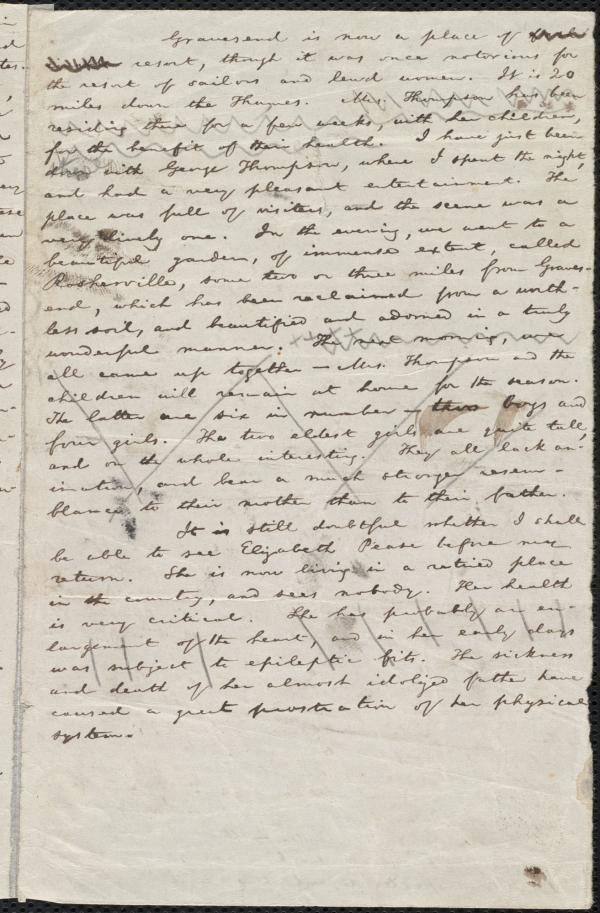 Gravesend is now a place of
resort, though it was once notorious for
the resort of sailors and lewd women. It is 20
miles down the Thames. Mrs. Thompson has been
residing there for a few weeks, with her children,
for the benefit of their health. I have just been
down with George Thompson, where I spent the night,
and had a very pleasant entertainment. The
place was full of visiters, and the scene was a
very lively one. In the evening, we went to a
beautiful garden, of immense extent, called
Rosherville, some two or three miles from Graves-
end, which has been reclaimed from a worth-
less soil, and beautified and adorned in a truly
wonderful manner. The next morning, we
all came up together — Mrs. Thompson and the
children will remain at home for the season.
The latter are six in number — two boys and
four girls. The two oldest girls are quite tall,
and on the whole interesting. They all lack an-
imation, and bear a much stronger resem-
blance to their mother than to their father.
It is still doubtful whether I shall
be able to see Elizabeth Pease before my
return. She is now living in a retired place
in the country, and sees nobody. Her health
is very critical. She has probably an en-
largement of the heart, and in her early days
was subject to epileptic fits. The sickness
and death of her almost idolized father have
caused a great prostration of her physical
system.